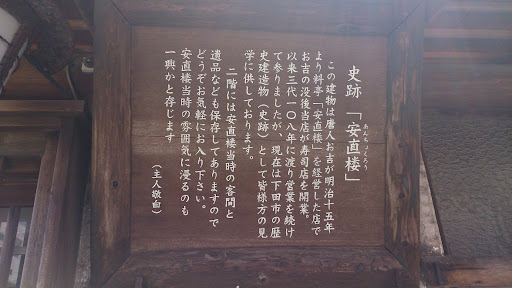 史跡「安直楼」
あんちょくろう
この建物は唐人お吉が明治十五年
より料亭「安直楼」を経営した店で
お吉の没後当店が寿司店を開業。
以来三代一〇八年に渡り営業を続け
て参りましたが、現在は下田市の歴
史建造物（史跡）として皆様方の見
学に供しております。
二階には安直楼当時の客間と
遺品なども保存してありますので
どうぞお気軽にお入り下さい。
安直楼当時の雰囲気に浸るのも
一興かと存じます
（主人敬白）